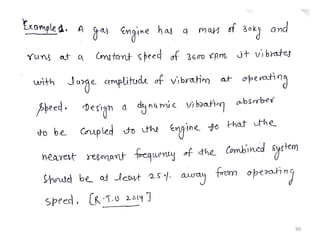 Example 1. A gas Engine has a mass of 30kg and
runs at a Constant speed of 3600 RPM. It vibrates
with large amplitude of vibration at operating
speed. Design a dynamic vibration absorber
to be Coupled to the Engine so that the
nearest resonant frequency of the Combined system
Should be at least 25% away from operating
speed. [R.T.U 2014]
90